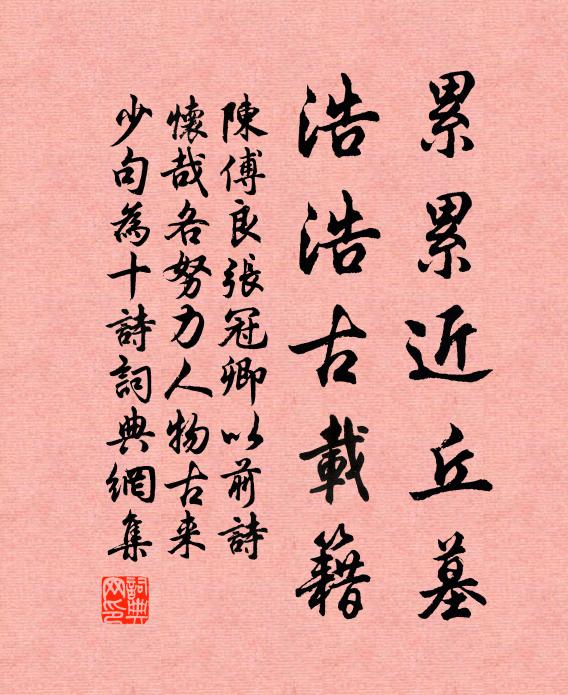 累累近丘墓
浩浩古載籍
陳傅良張冠卿以前詩
懷哉各努力人物古来
少句為十詩詞典網集
詞典网印